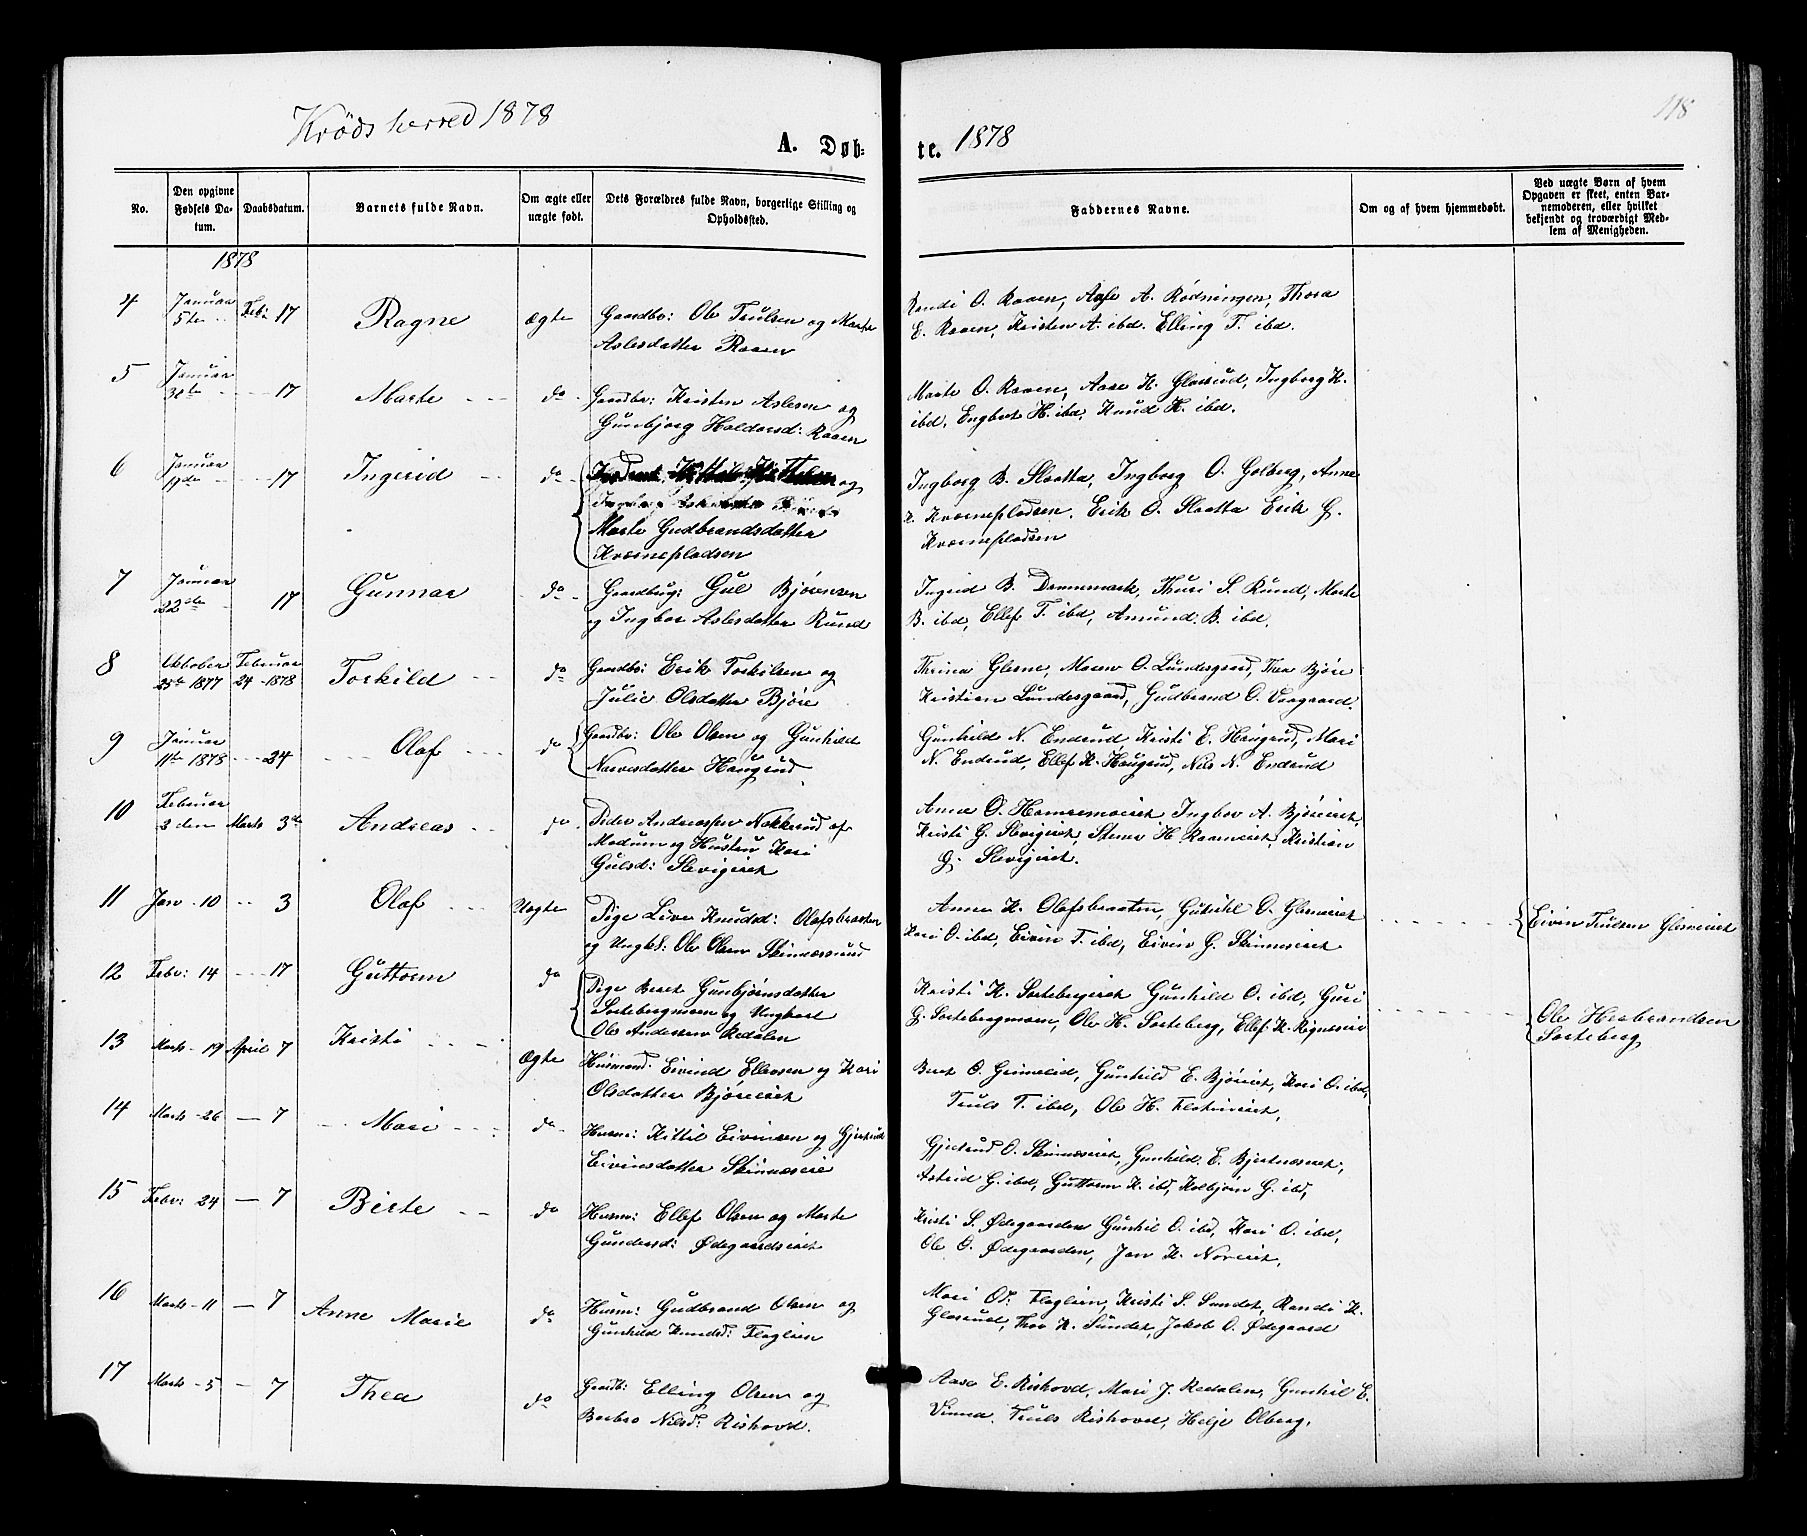 Krødsherred 1878
A. Døb-
te. 1878
118
No.
Den opgivne Fødsels Da-
tum.
Daabsdatum.
Barnets fulde Navn.
Om ægte eller
uægte født.
Dets Forældres fulde Navn, borgerlige Stilling og
Opholdssted.
Faddernes Navne.
Om og af hvem hjemmedøbt.
Ved uægte Børn af hvem
Opgaven er skeet, enten Bar-
nemoderen, eller hvilket
bekjendt og troværdigt Med-
lem af Menigheden.
1878
4 Januar 5te Feb: 17 Ragne ægte Gaardbr: Ole Trulsen og Marte
Aslesdatter Raaen
Randi O. Raaen, Aase A. Rødningen, Thora
E. Raaen, Kristen A. ibd. Elling T. ibd.
5 Januar 17 Marte do Gaardbr: Kristen Aslesen og
Gunbjørg Haldorsd: Raaen
Marte O. Raaen, Aase K. Glosrud, Ingborg K.
ibd, Engbret H. ibd, Knud K. ibd.
6 Januar 19de 17 Ingerid do og
Marte Gudbrandsdatter
Kværnepladsen
Ingborg B. Slaatta, Ingborg O. Golberg, Anne
K. Kværnepladsen, Erik O. Slaatta Erik G.
Kværnepladsen
7 Januar 22de 17 Gunnar do Gaardbrug: Gul Bjørnsen
og Ingbor Aslesdatter Rund
Ingrid B. Dannemark, Thuri S. Rund, Marte
B. ibd, Ellef T. ibd, Amund B. ibd.
8 Oktober 25de 1877 Februar 24 1878 Torkild do Gaardbr: Erik Torkilsen og
Julie Olsdatter Bjøre
Thrina Glesne, Maren O. Lundesgaard, Thea Bjøre
Kristian Lundesgaard, Gudbrand O. Vaagaard.
9 Januar 11te 1878 24 Olaf do Gaardbr: Ole Olsen og Gunhild
Narvesdatter Haugrud
Gunhild N. Endrud, Kristi E. Haugrud, Mari
N. Endrud, Ellef K. Haugrud, Nils N. Endrud
10 Februar 3 den Marts 3de Andreas do Peder Andreassen Nakkerud af
Modum og Hustru Kari
Gulsd: Slevigeiet
Anne O. Hamremoeiet, Ingbor A. Bjøreiet,
Kristi G. Slevigeiet, Stener H. Raameiet, Kristian
G. Slevigeiet.
11 Jan 10 3 Olaf Uægte Pige Live Knudsd: Olafsbraaten
og Ungk: Ole Olsen Skinnesmoen
Anne K. Olafsbraaten, Gunhil O. Glesneiet
Kari O. ibd, Eivin T. ibd, Eivin G. Skinneseiet
Eivin Trulsen Glesneiet
12 Febr: 14 17 Guttorm do Pige Beret Gunbjørnsdatter
Sortebergmoen og Ungkarl
Ole Andersen Redalen
Kristi K. Sortebergeiet Gunhild O. ibd, Guri
G. Sortebergmoen, Ole H. Sorteberg, Ellef K. Ringneseie
Ole Herbrandsen
Sorteberg
13 Marts 19 April 7 Kristi Ægte Husmand: Eivind Ellevsen og Kari
Olsdatter Bjøreeiet
Beret O. Grimelid, Gunhild E. Bjøreiet, Kari O. ibd,
Truls T. ibd, Ole H. Flatineiet.
14 Marts 26 7 Mari do Husm: Kittil Eivinsen og Gjertrud
Eivinsdatter Skinneseie
Gjertrud O. Skinneseiet, Gunhild E. Bjertneseiet,
Astrid G. ibd, Guttorm K. ibd, Kolbjørn G. ibd,
15 Febr: 24 7 Birte do Husm: Ellef Olsen og Marte
Gundersd: Ødegaardseiet
Kristi S. Ødegaarden Gunhil O. ibd, Kari O. ibd,
Ole O. Ødegaarden, Jan K. Noreiet.
16 Marts 11 7 Anne Marie do Husm: Gudbrand Olsen og
Gunhild Knudsd: Flaglien
Mari Od: Flaglien, Kristi S. Sundet, Randi K.
Glosrud, Thor K. Sundet, Jakob O. Ødegaard
17 Marts 5 7 Thea do Gaardb: Elling Olsen og
Berbro Nilsd: Rishovd.
Aase E. Rishovd, Mari J. Redalen, Gunhil E.
Vinna, Truls Rishovd, Helje Olberg.